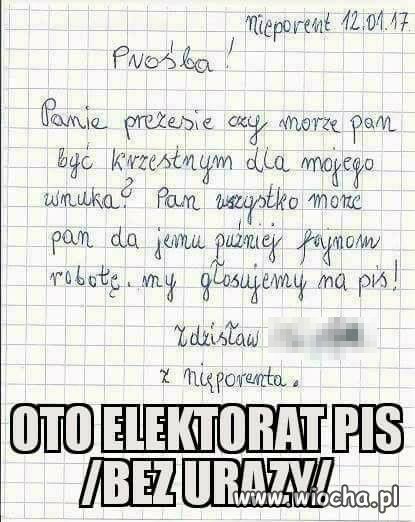 Nieporent 12.01.17.
Prośba!
Panie prezesie czy morze pan
być krzestnym dla mojego
wnuka? Pan wszystko morze
pan da jemu puźniej fajnom
robotę. my głosujemy na pis!
Zdzisław
z nieporenta.
OTO ELEKTORAT PIS
/BEZ URAZY/
www.wiocha.pl